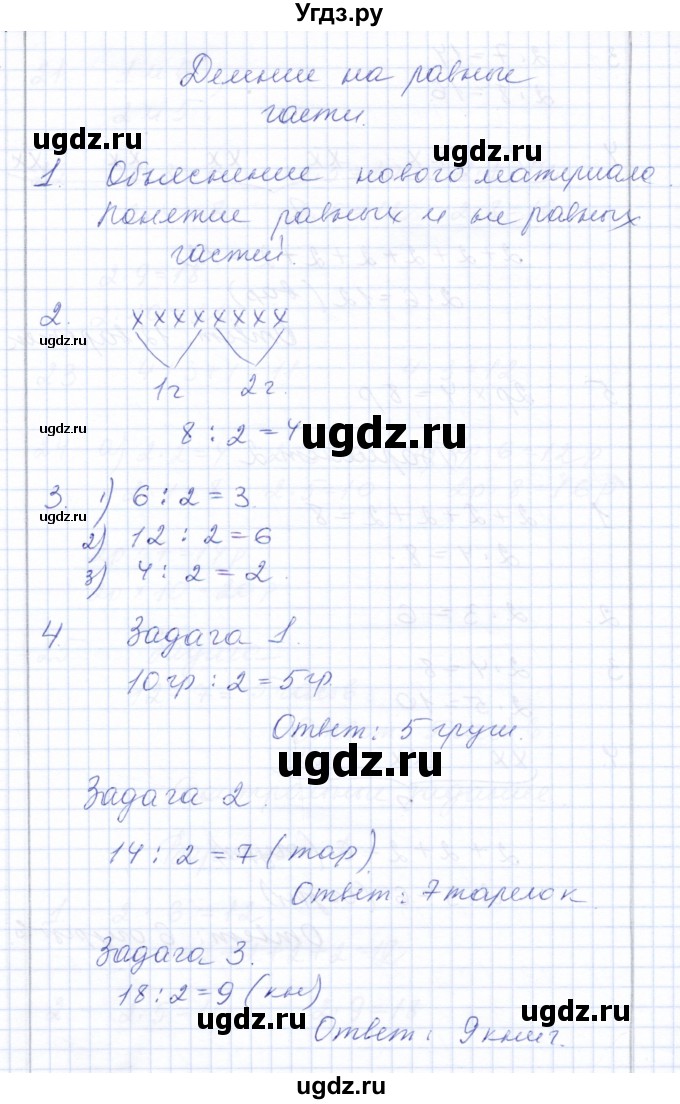 Угдз.ру
Деление на равные
части.
ugdz.ru
ugdz.ru
1. Объяснение нового материала.
Понятие равных и не равных
частей.
2. х х х х х х х х
ugdz.ru
1г 2г.
ugdz.ru
8 : 2 = 4
ugdz.ru
3. 1) 6 : 2 = 3.
ugdz.ru
2) 12 : 2 = 6
3) 4 : 2 = 2.
4. Задача 1.
10 гр : 2 = 5 гр.
Ответ: 5 груш.
ugdz.ru
Задача 2.
14 : 2 = 7 (тар).
Ответ: 7 тарелок
Задача 3.
18 : 2 = 9 (кн)
ugdz.ru
ugdz.ru
Ответ: 9 книг.
ugdz.ru